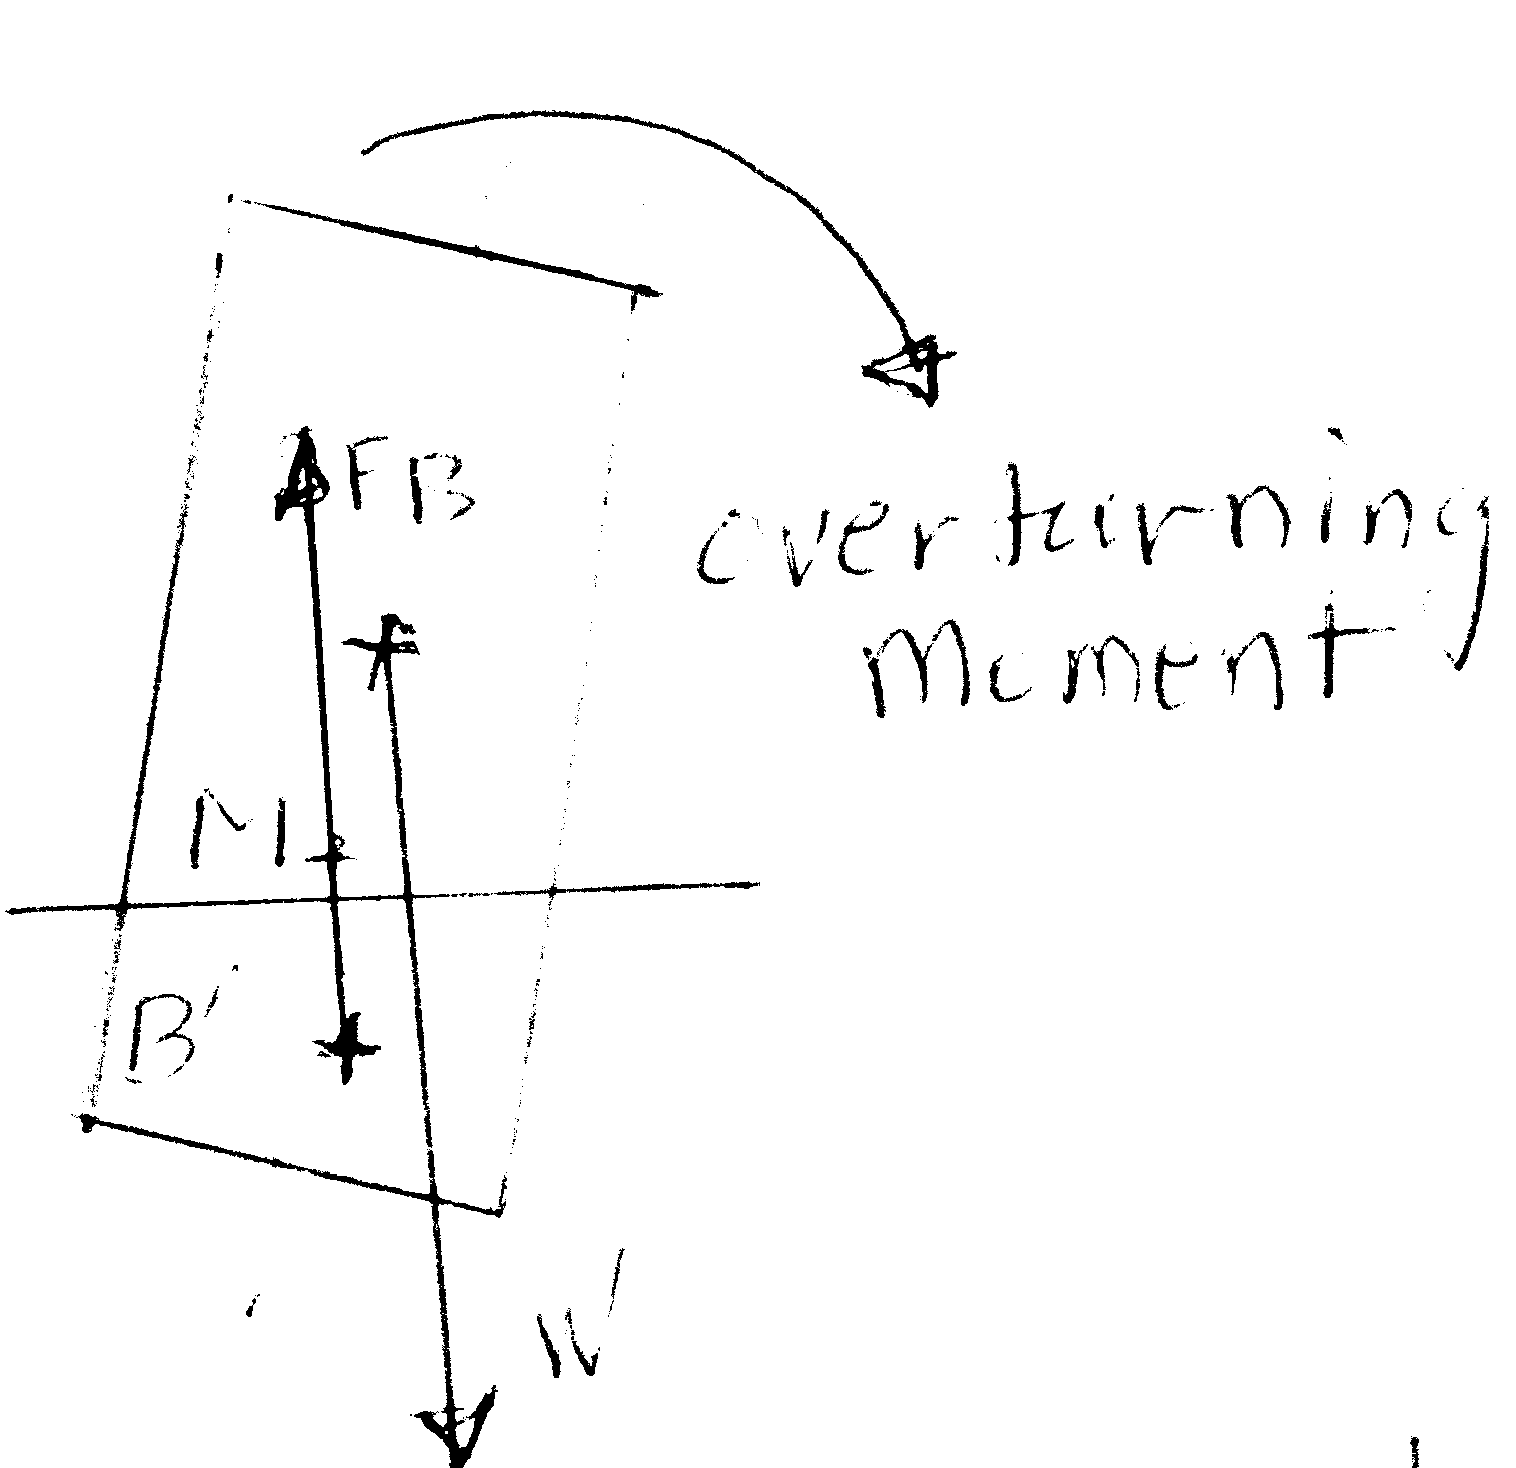 FB
overturning
Moment
M
B'
W'